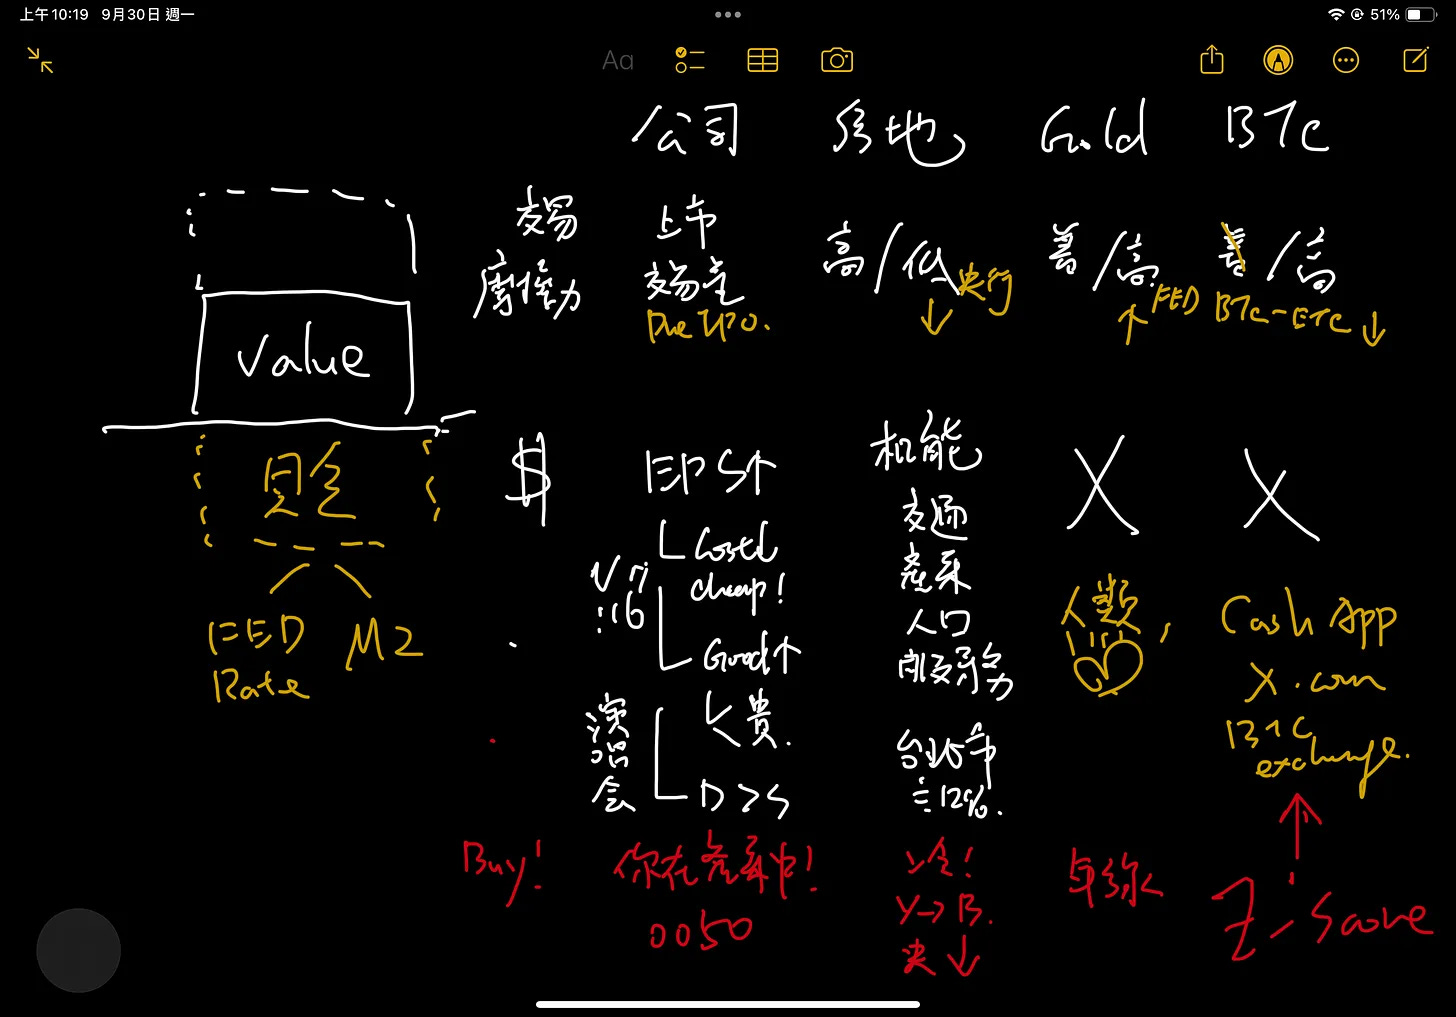 上午10:19 9月30日 週一
51%
Aa
公司 房地 Gold BTC
交易
摩擦力
上市
交易量
Pre IPO.
高/低 央行 ↓
善/高 ↑ FED
善/高
BTC-ETC ↓
value
FED
Rate
M2
$
EPS↑
Cost↓
cheap!
Good↑
貴.
D>S
演
唱
会
机能
交通
產業
人口
台北市
12%.
X
X
人類
Cash App
X.com
BTC
exchange.
Buy!
你在產業中!
0050
冷!
Y→B.
央↓
年線
Z-Score